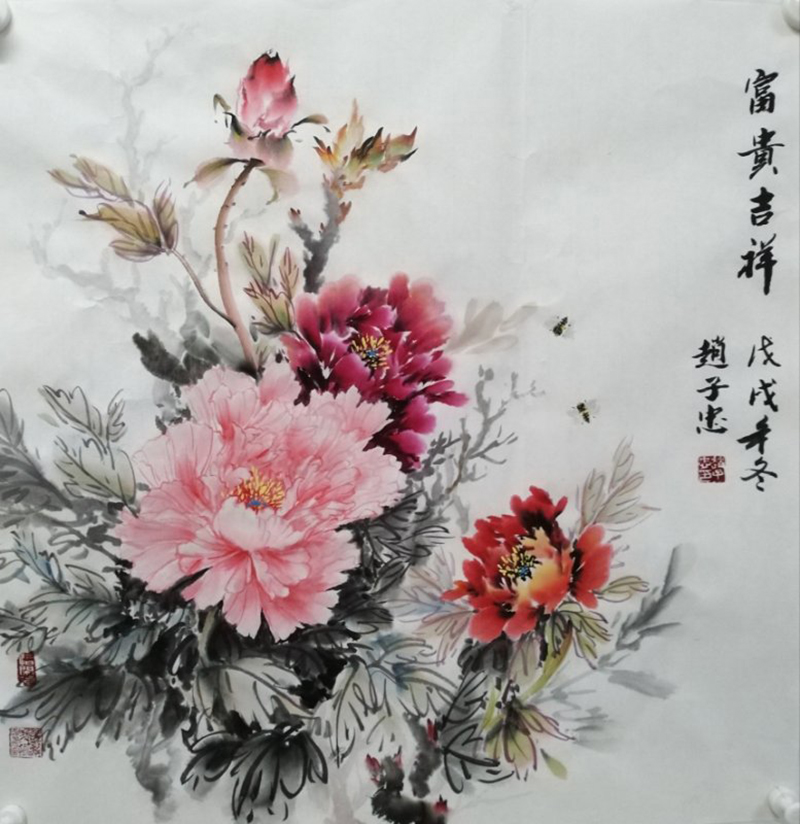 富貴吉祥
戊戌年冬
趙子忠